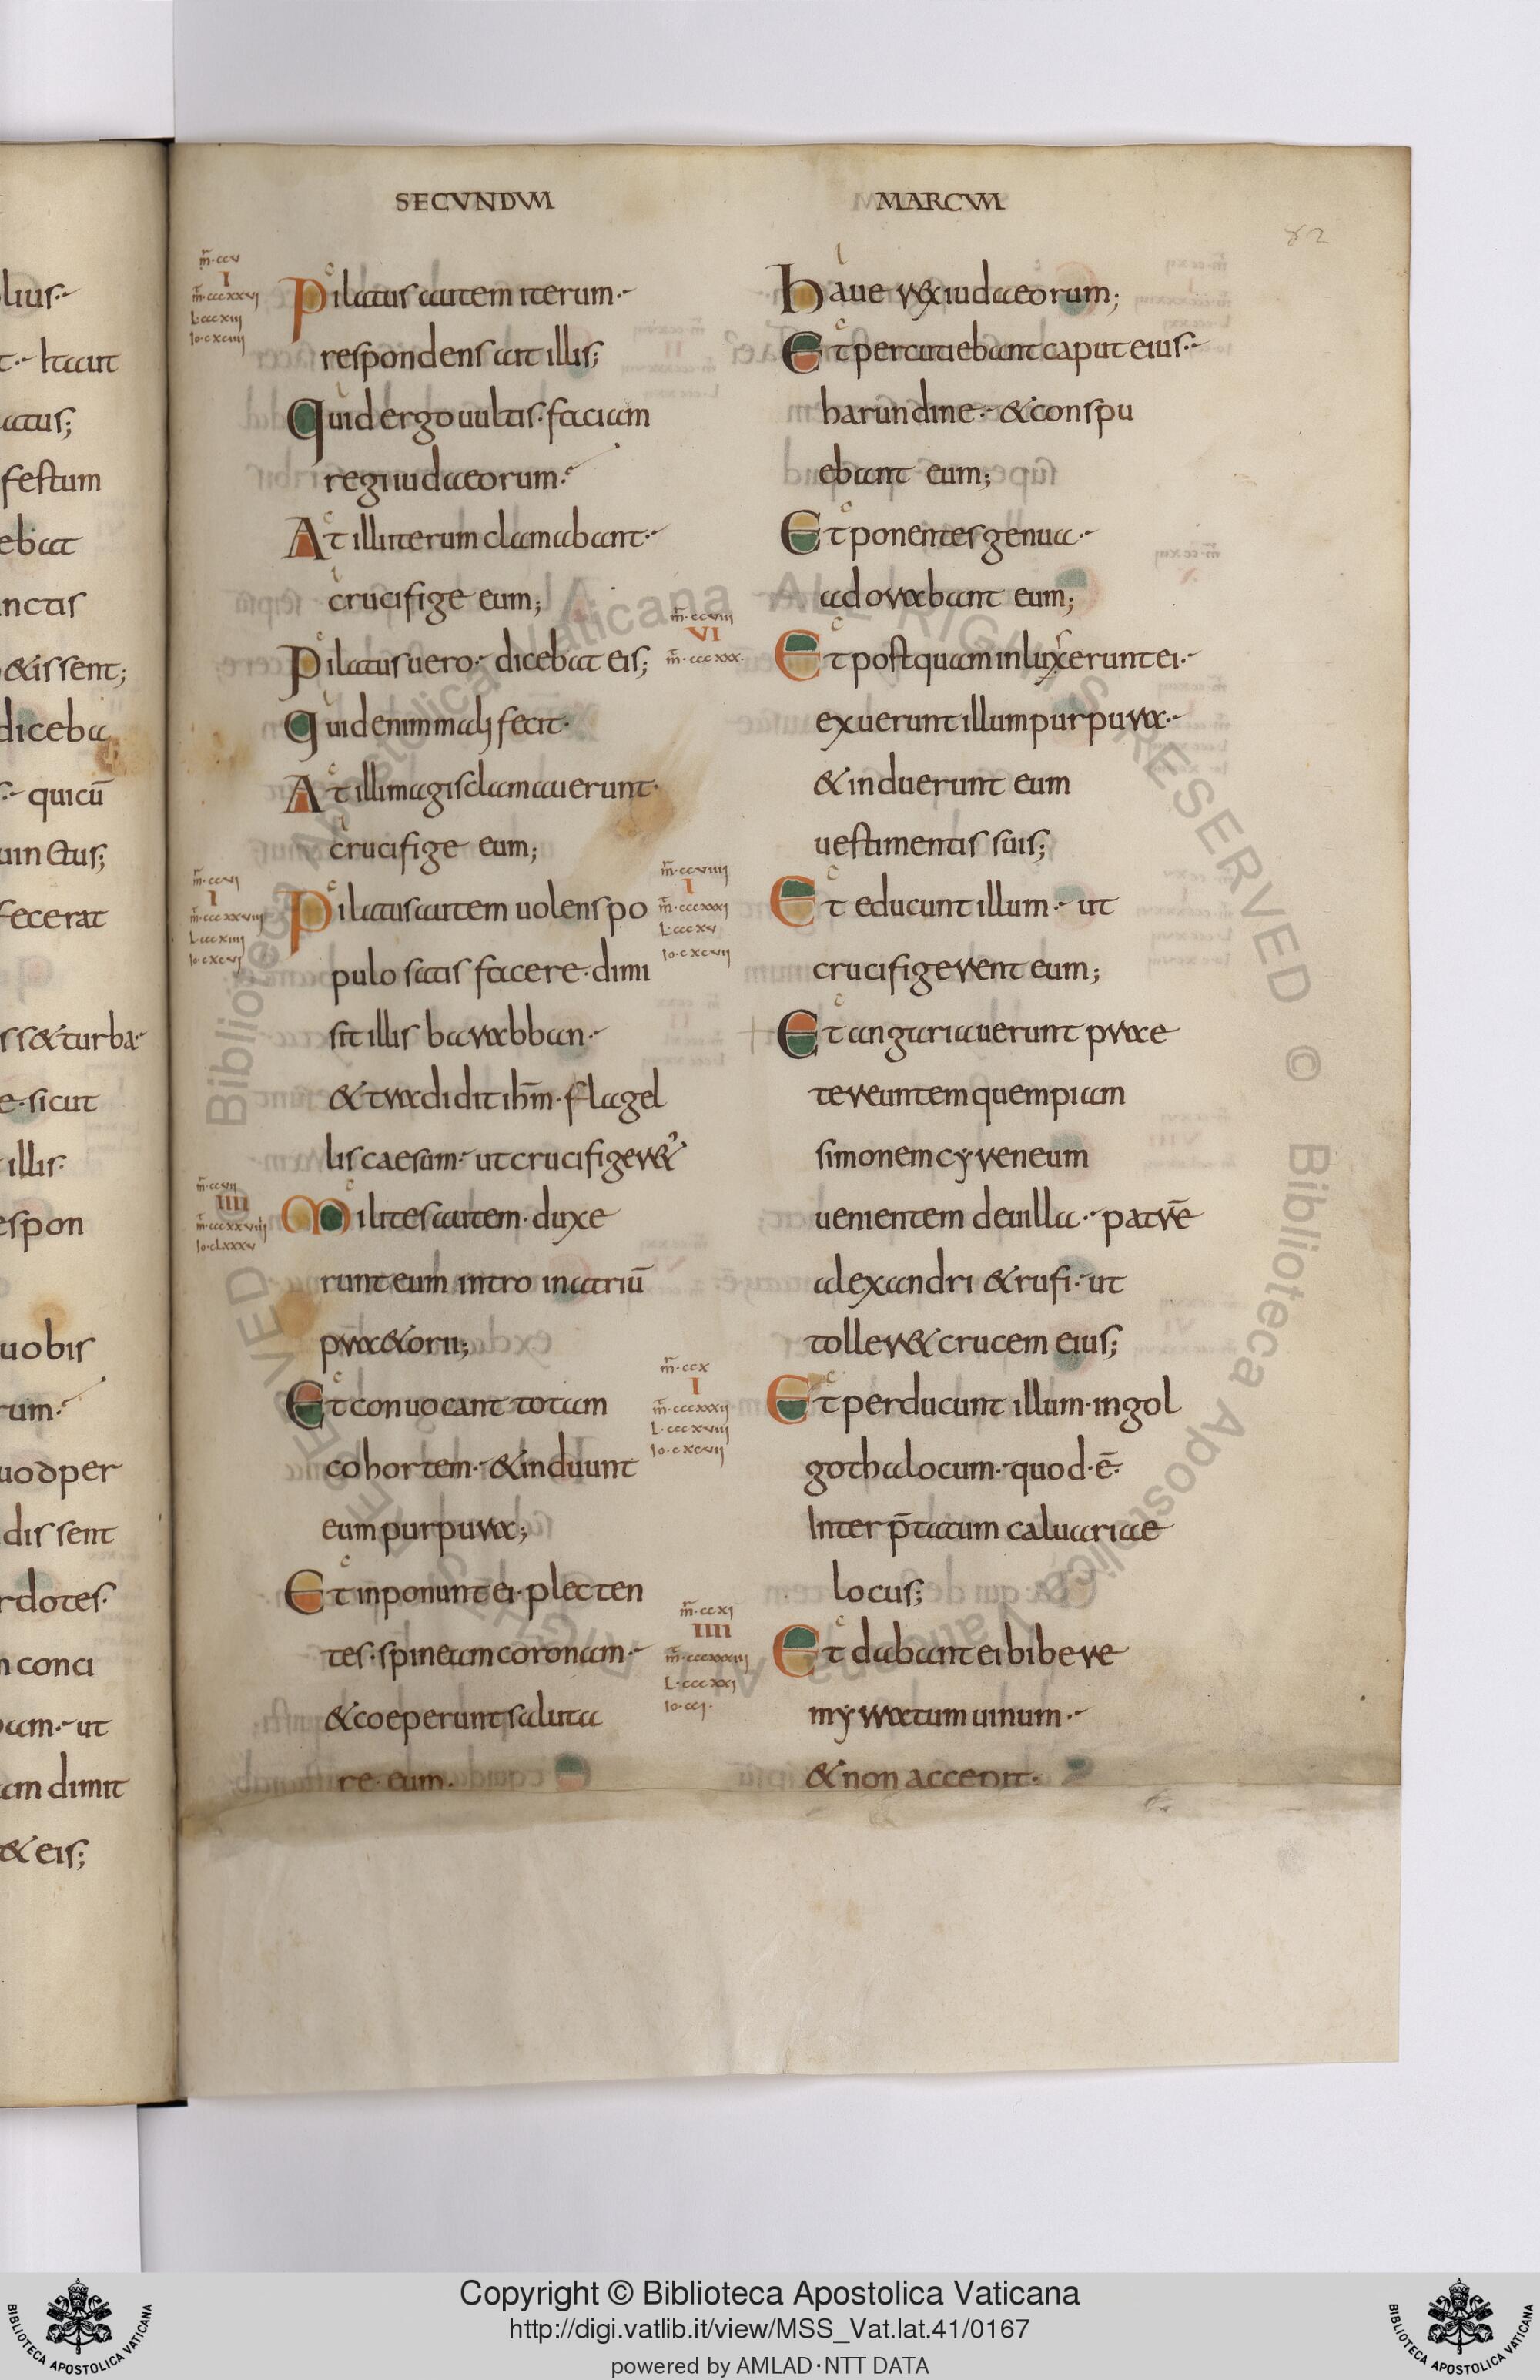 SECUNDUM
MARCUM
82
m̄·ccv
I
m̄·cccxxvj
L·cccxiij
Io·cxciiij
Pilatus autem iterum·
respondens ait illis;
Quid ergo uultis·faciam
regi iudaeorum·
At illi iterum clamabant·
crucifige eum;
Pilatus uero· dicebat eis;
Quid enim mali fecit·
At illi magis clamauerunt·
crucifige eum;
m̄·ccvj
I
m̄·cccxxviij
L·cccxiiij
Io·cxcvj
Pilatus autem uolens po
pulo satis facere·dimi
sit illis barabban·
& tradidit ihm̄·flagel
lis caesum· ut crucifiger&
m̄·ccvij
IIII
m̄·cccxxviiij
Io·clxxxv
Milites autem·duxe
runt eum intro in atriū
praetorii;
Et conuocant totam
cohortem·&induunt
eum purpura;
Et inponunt ei·plecten
tes·spineam coronam·
&coeperunt saluta
re·eum·
haue rex iudaeorum;
Et percutiebant caput eius·
harundine·&conspu
ebant eum;
Et ponentes genua·
adorabant eum;
m̄·ccviii
VI
m̄·cccxxx·
Et postquam inluxerunt ei·
exuerunt illum purpura·
&induerunt eum
uestimentis suis;
m̄·ccviiij
I
m̄·cccxxxj
L·cccxv
Io·cxcvij
Et educunt illum· ut
crucifigerent eum;
Et angariauerunt praete
tereuntem quempiam
simonem cyreneum
uenientem de uilla·patrē
alexandri &rufi·ut
toller& crucem eius;
m̄·ccx
I
m̄·cccxxxij
L·cccxviij
Io·cxcvij
Et perducunt illum·in gol
gotha locum·quod·ē·
Inter p̄tatum caluariae
locus;
m̄·ccxj
IIII
m̄·cccxxxiij
L·cccxxj
Io·ccj·
Et dabant ei bibere
myrratum uinum·
&non accepit·
Copyright © Biblioteca Apostolica Vaticana
http://digi.vatlib.it/view/MSS_Vat.lat.41/0167
powered by AMLAD·NTT DATA